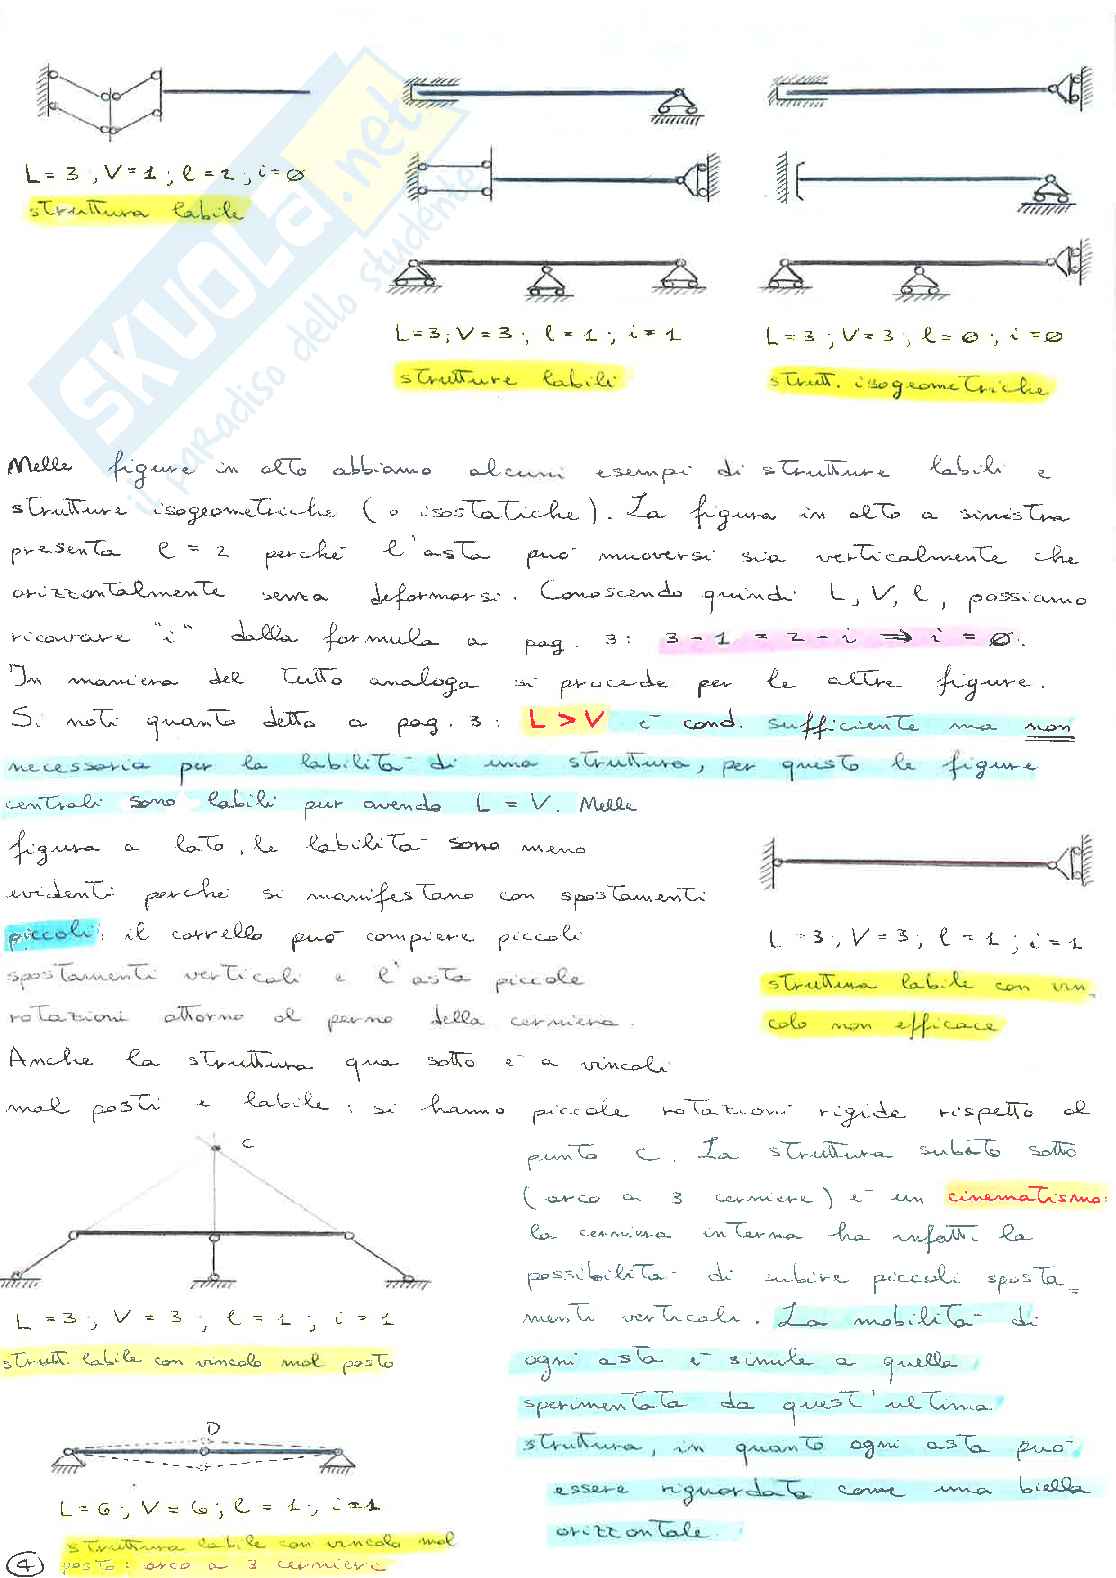 L = 3 ; V = 1 ; l = 2 ; i = 0
struttura labile
L = 3 ; V = 3 ; l = 1 ; i = 1
strutture labili
L = 3 ; V = 3 ; l = 0 ; i = 0
strutt. isogeometriche
SKUOLA.net
il paradiso dello studente
Nelle figure in alto abbiamo alcuni esempi di strutture labili e
strutture isogeometriche (o isostatiche). La figura in alto a sinistra
presenta l = 2 perché l'asta può muoversi sia verticalmente che
orizzontalmente senza deformarsi. Conoscendo quindi L, V, l, possiamo
ricavare "i" dalla formula a pag. 3 : 3 - 1 = 2 - i ⇒ i = 0.
In maniera del tutto analoga si procede per le altre figure.
Si noti quanto detto a pag. 3 : L > V è cond. sufficiente ma non
necessaria per la labilità di una struttura, per questo le figure
centrali sono labili pur avendo L = V. Nella
figura a lato, le labilità sono meno
evidenti perché si manifestano con spostamenti
piccoli: il carrello può compiere piccoli
spostamenti verticali e l'asta piccole
rotazioni attorno al perno della cerniera.
L = 3 ; V = 3 ; l = 1 ; i = 1
struttura labile con vin-
colo non efficace
Anche la struttura qua sotto è a vincoli
mal posti e labile ; si hanno piccole rotazioni rigide rispetto al
punto C. La struttura subito sotto
(arco a 3 cerniere) è un cinematismo:
la cerniera interna ha infatti la
possibilità di subire piccoli sposta=
menti verticali. La mobilità di
ogni asta è simile a quella
sperimentata da quest'ultima
struttura, in quanto ogni asta può
essere riguardata come una biella
orizzontale.
C
L = 3 ; V = 3 ; l = 1 ; i = 1
strutt. labile con vincolo mal posto
D
L = 6 ; V = 6 ; l = 1 ; i = 1
struttura labile con vincolo mal
posto: arco a 3 cerniere
4